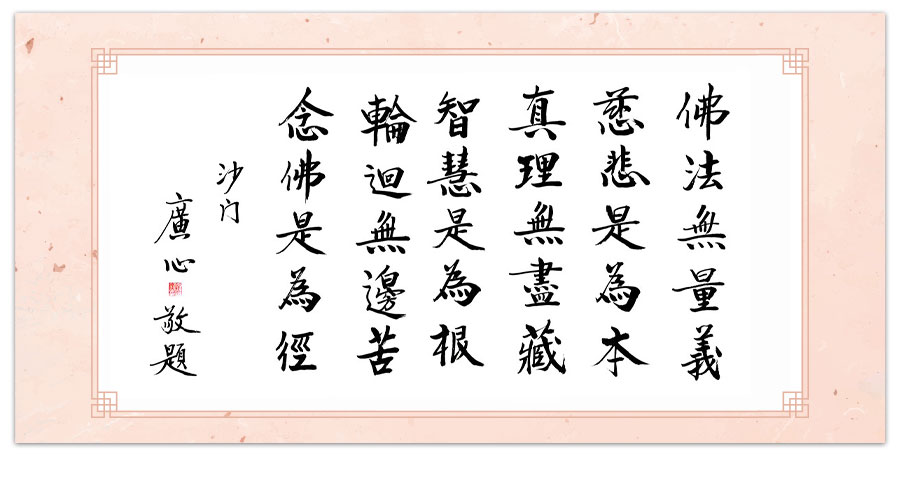 佛法無量義
慈悲是為本
真理無盡藏
智慧是為根
輪迴無邊苦
念佛是為徑
沙门
廣心
敬題